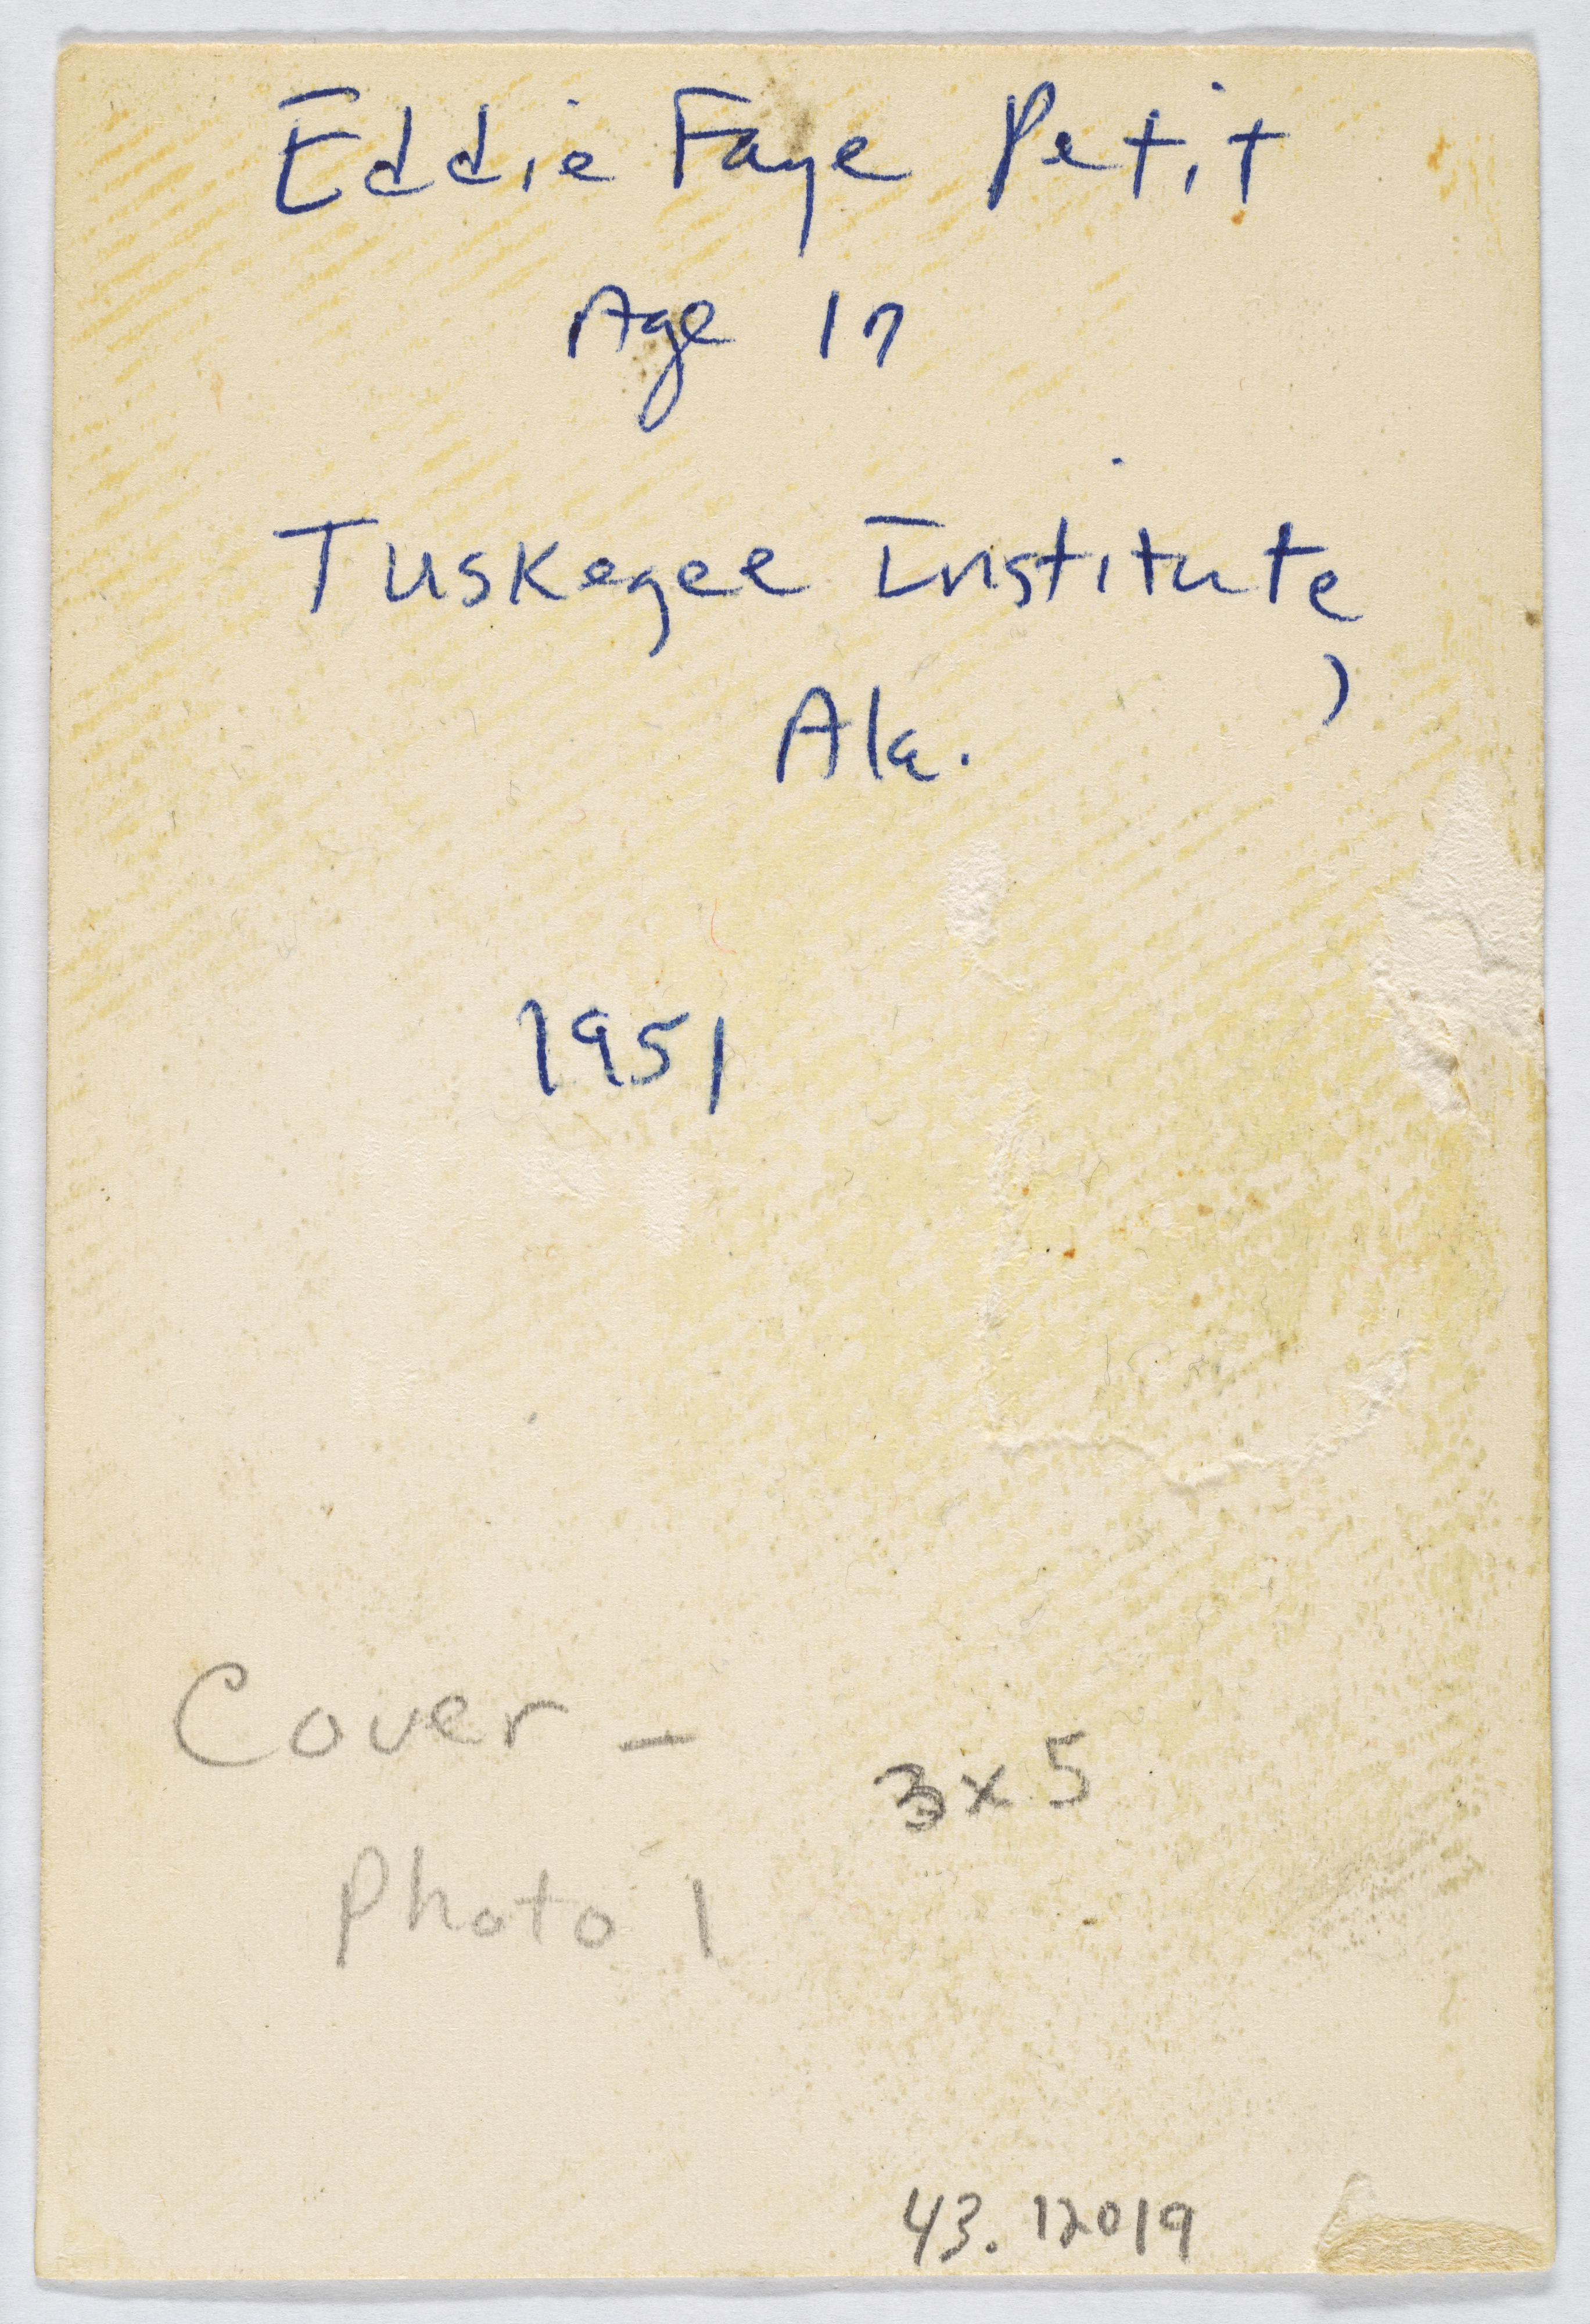 Eddie Faye Petit
Age 17
Tuskegee Institute,
Ala.
1951
Cover –
3x5
Photo 1
43.12019